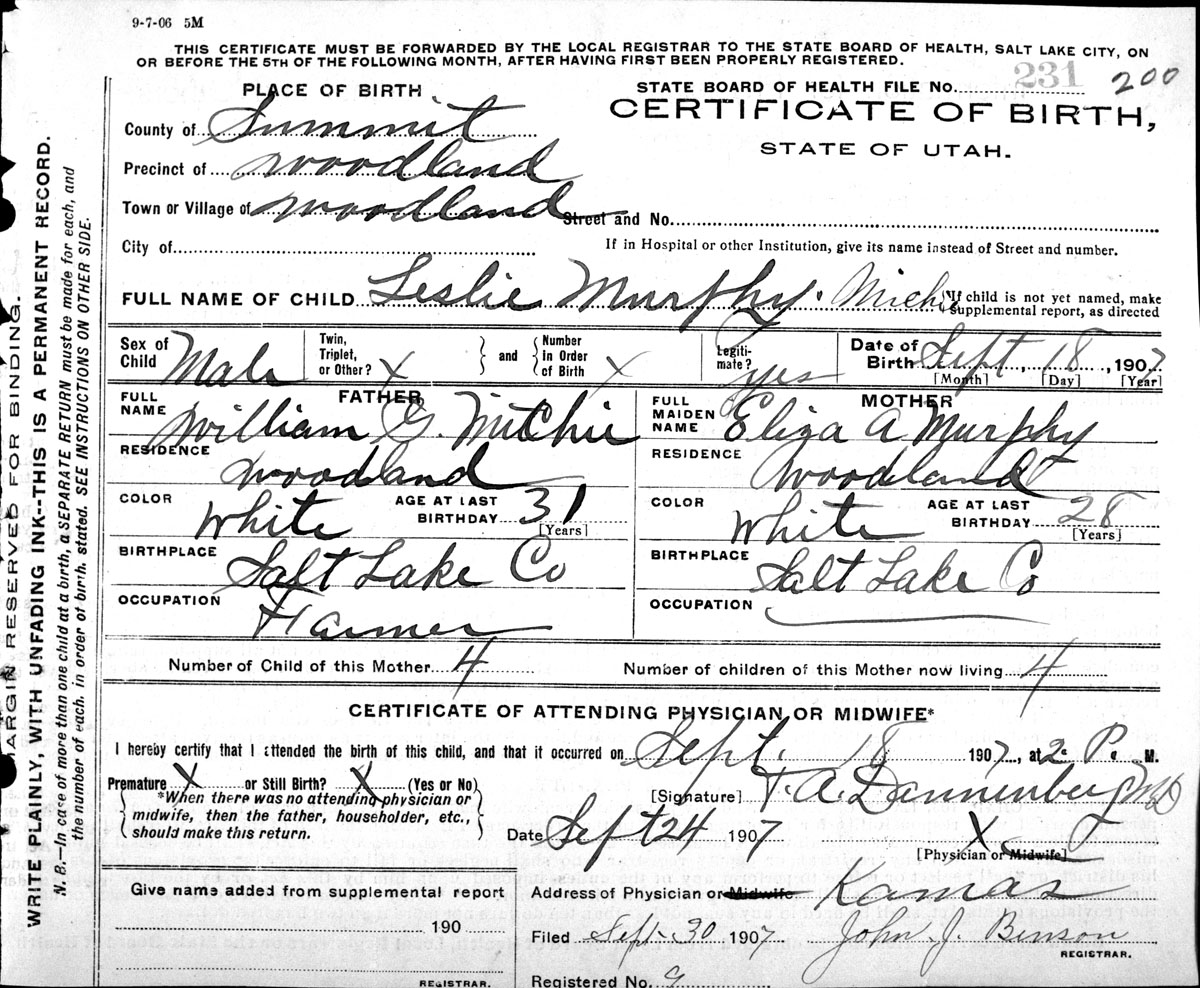 9-7-06 5M
THIS CERTIFICATE MUST BE FORWARDED BY THE LOCAL REGISTRAR TO THE STATE BOARD OF HEALTH, SALT LAKE CITY, ON
OR BEFORE THE 5TH OF THE FOLLOWING MONTH, AFTER HAVING FIRST BEEN PROPERLY REGISTERED.
PLACE OF BIRTH
STATE BOARD OF HEALTH FILE No. 231 200
CERTIFICATE OF BIRTH,
STATE OF UTAH.
County of Summit
Precinct of Woodland
Town or Village of Woodland Street and No.
City of
If in Hospital or other Institution, give its name instead of Street and number.
FULL NAME OF CHILD Leslie Murphy. Michie
If child is not yet named, make
supplemental report, as directed
Sex of
Child Male
Twin,
Triplet,
or Other? X
and
Number
in Order
of Birth X
Legiti-
mate? yes
Date of
Birth Sept 18, 1907
[Month] [Day] [Year]
FATHER
FULL
NAME William G. Mitchie
RESIDENCE Woodland
COLOR White
AGE AT LAST
BIRTHDAY 31
[Years]
BIRTHPLACE Salt Lake Co
OCCUPATION Farmer
MOTHER
FULL
MAIDEN
NAME Eliza A Murphy
RESIDENCE Woodland
COLOR White
AGE AT LAST
BIRTHDAY 28
[Years]
BIRTHPLACE Salt Lake Co
OCCUPATION
Number of Child of this Mother 4
Number of children of this Mother now living 4
CERTIFICATE OF ATTENDING PHYSICIAN OR MIDWIFE*
I hereby certify that I attended the birth of this child, and that it occurred on Sept. 18 1907, at 2 P. M.
Premature X or Still Birth? X (Yes or No)
*When there was no attending physician or
midwife, then the father, householder, etc.,
should make this return.
[Signature] T. A. Dannenberg MD
Date Sept 24 1907 X
[Physician or Midwife]
Give name added from supplemental report
190
REGISTRAR.
Address of Physician or Midwife Kamas
Filed Sept 30 1907 John J. Benson
REGISTRAR.
Registered No. 9
MARGIN RESERVED FOR BINDING.
WRITE PLAINLY, WITH UNFADING INK--THIS IS A PERMANENT RECORD.
N. B.—In case of more than one child at a birth, a SEPARATE RETURN must be made for each, and
the number of each, in order of birth, stated. SEE INSTRUCTIONS ON OTHER SIDE.